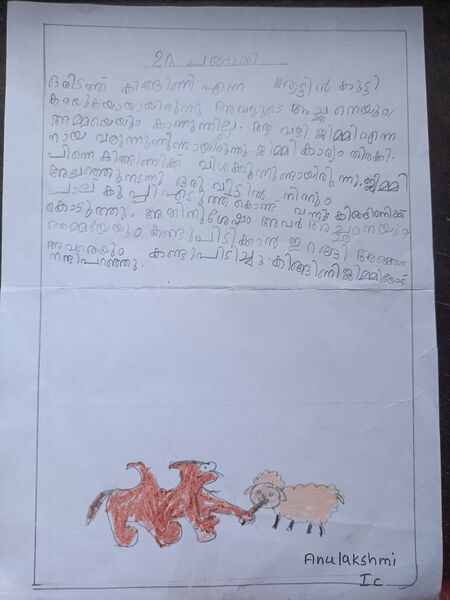 ഒരിടത്ത് കിങ്ങിണി എന്ന ആട്ടിൻ കുട്ടി
കരയുകയായായിരുന്നു അവളുടെ അച്ഛനെയും,
അമ്മയെയും കാണുന്നില്ല. ആ വഴി ജിമ്മി എന്ന
നായ വരുന്നുന്നുണ്ടായിരുന്നു. ജിമ്മി കാര്യം തിരക്കി.
പിന്നെ കിങ്ങിണിക്ക് വിശക്കുന്നുണ്ടായിരുന്നു. ജിമ്മി
അലഞ്ഞുനടന്നു ഒരു വീട്ടിൽ നിന്നും
പാല കുപ്പി എടുത്ത് കൊണ്ട് വന്നു കിങ്ങിണിക്ക്
കൊടുത്തു. അതിനുശേഷം അവർ അച്ഛനെയും
അമ്മയേയും കണ്ടുപിടിക്കാൻ ഇറങ്ങി അങ്ങനെ
അവരെയും കണ്ടുപിടിച്ചു. കിങ്ങിണി ജിമ്മിയോട്
നന്ദിപറഞ്ഞു.
Anulakshmi
I c